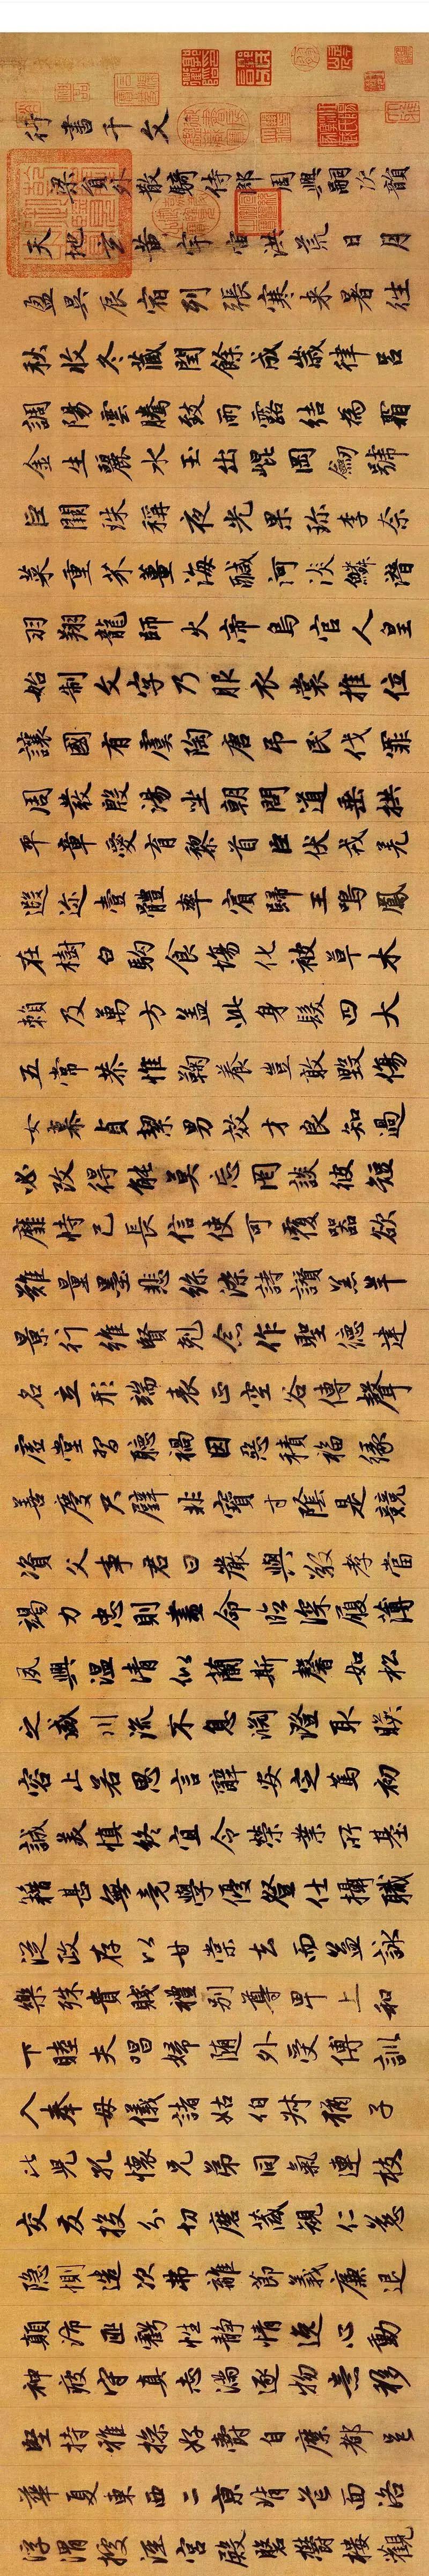 行書千文
梁員外散騎侍郎周興嗣次韻
天地玄黃宇宙洪荒日月
盈昃辰宿列張寒来暑往
秋收冬藏閏餘成歲律呂
調陽雲騰致雨露結為霜
金生麗水玉出崐岡劒號
巨闕珠稱夜光果珎李柰
菜重芥薑海鹹河淡鱗潛
羽翔龍師火帝鳥官人皇
始制文字乃服衣裳推位
讓國有虞陶唐弔民伐罪
周發殷湯坐朝問道垂拱
平章愛育黎首臣伏戎羌
遐迩壹體率賓歸王鳴鳳
在樹白駒食場化被草木
賴及萬方盖此身髮四大
五常恭惟鞠養豈敢毀傷
女慕貞絜男效才良知過
必改得能莫忘罔談彼短
靡恃己長信使可覆器欲
難量墨悲絲染詩讚羔羊
景行維賢剋念作聖德建
名立形端表正空谷傳聲
虛堂習聽禍因惡積福緣
善慶尺璧非寶寸陰是競
資父事君曰嚴與敬孝當
竭力忠則盡命臨深履薄
夙興温清似蘭斯馨如松
之盛川流不息淵澄取暎
容止若思言辭安定篤初
誠美慎終宜令榮業所基
籍甚無竟學優登仕攝職
從政存以甘棠去而益詠
樂殊貴賤禮別尊卑上和
下睦夫唱婦随外受傅訓
入奉母儀諸姑伯叔猶子
比兒孔懷兄弟同氣連枝
交友投分切磨箴規仁慈
隱惻造次弗離節義廉退
顛沛匪虧性静情逸心動
神疲守真志滿逐物意移
堅持雅操好爵自縻都邑
華夏東西二京背芒面洛
浮渭據涇宮殿盤鬱樓觀